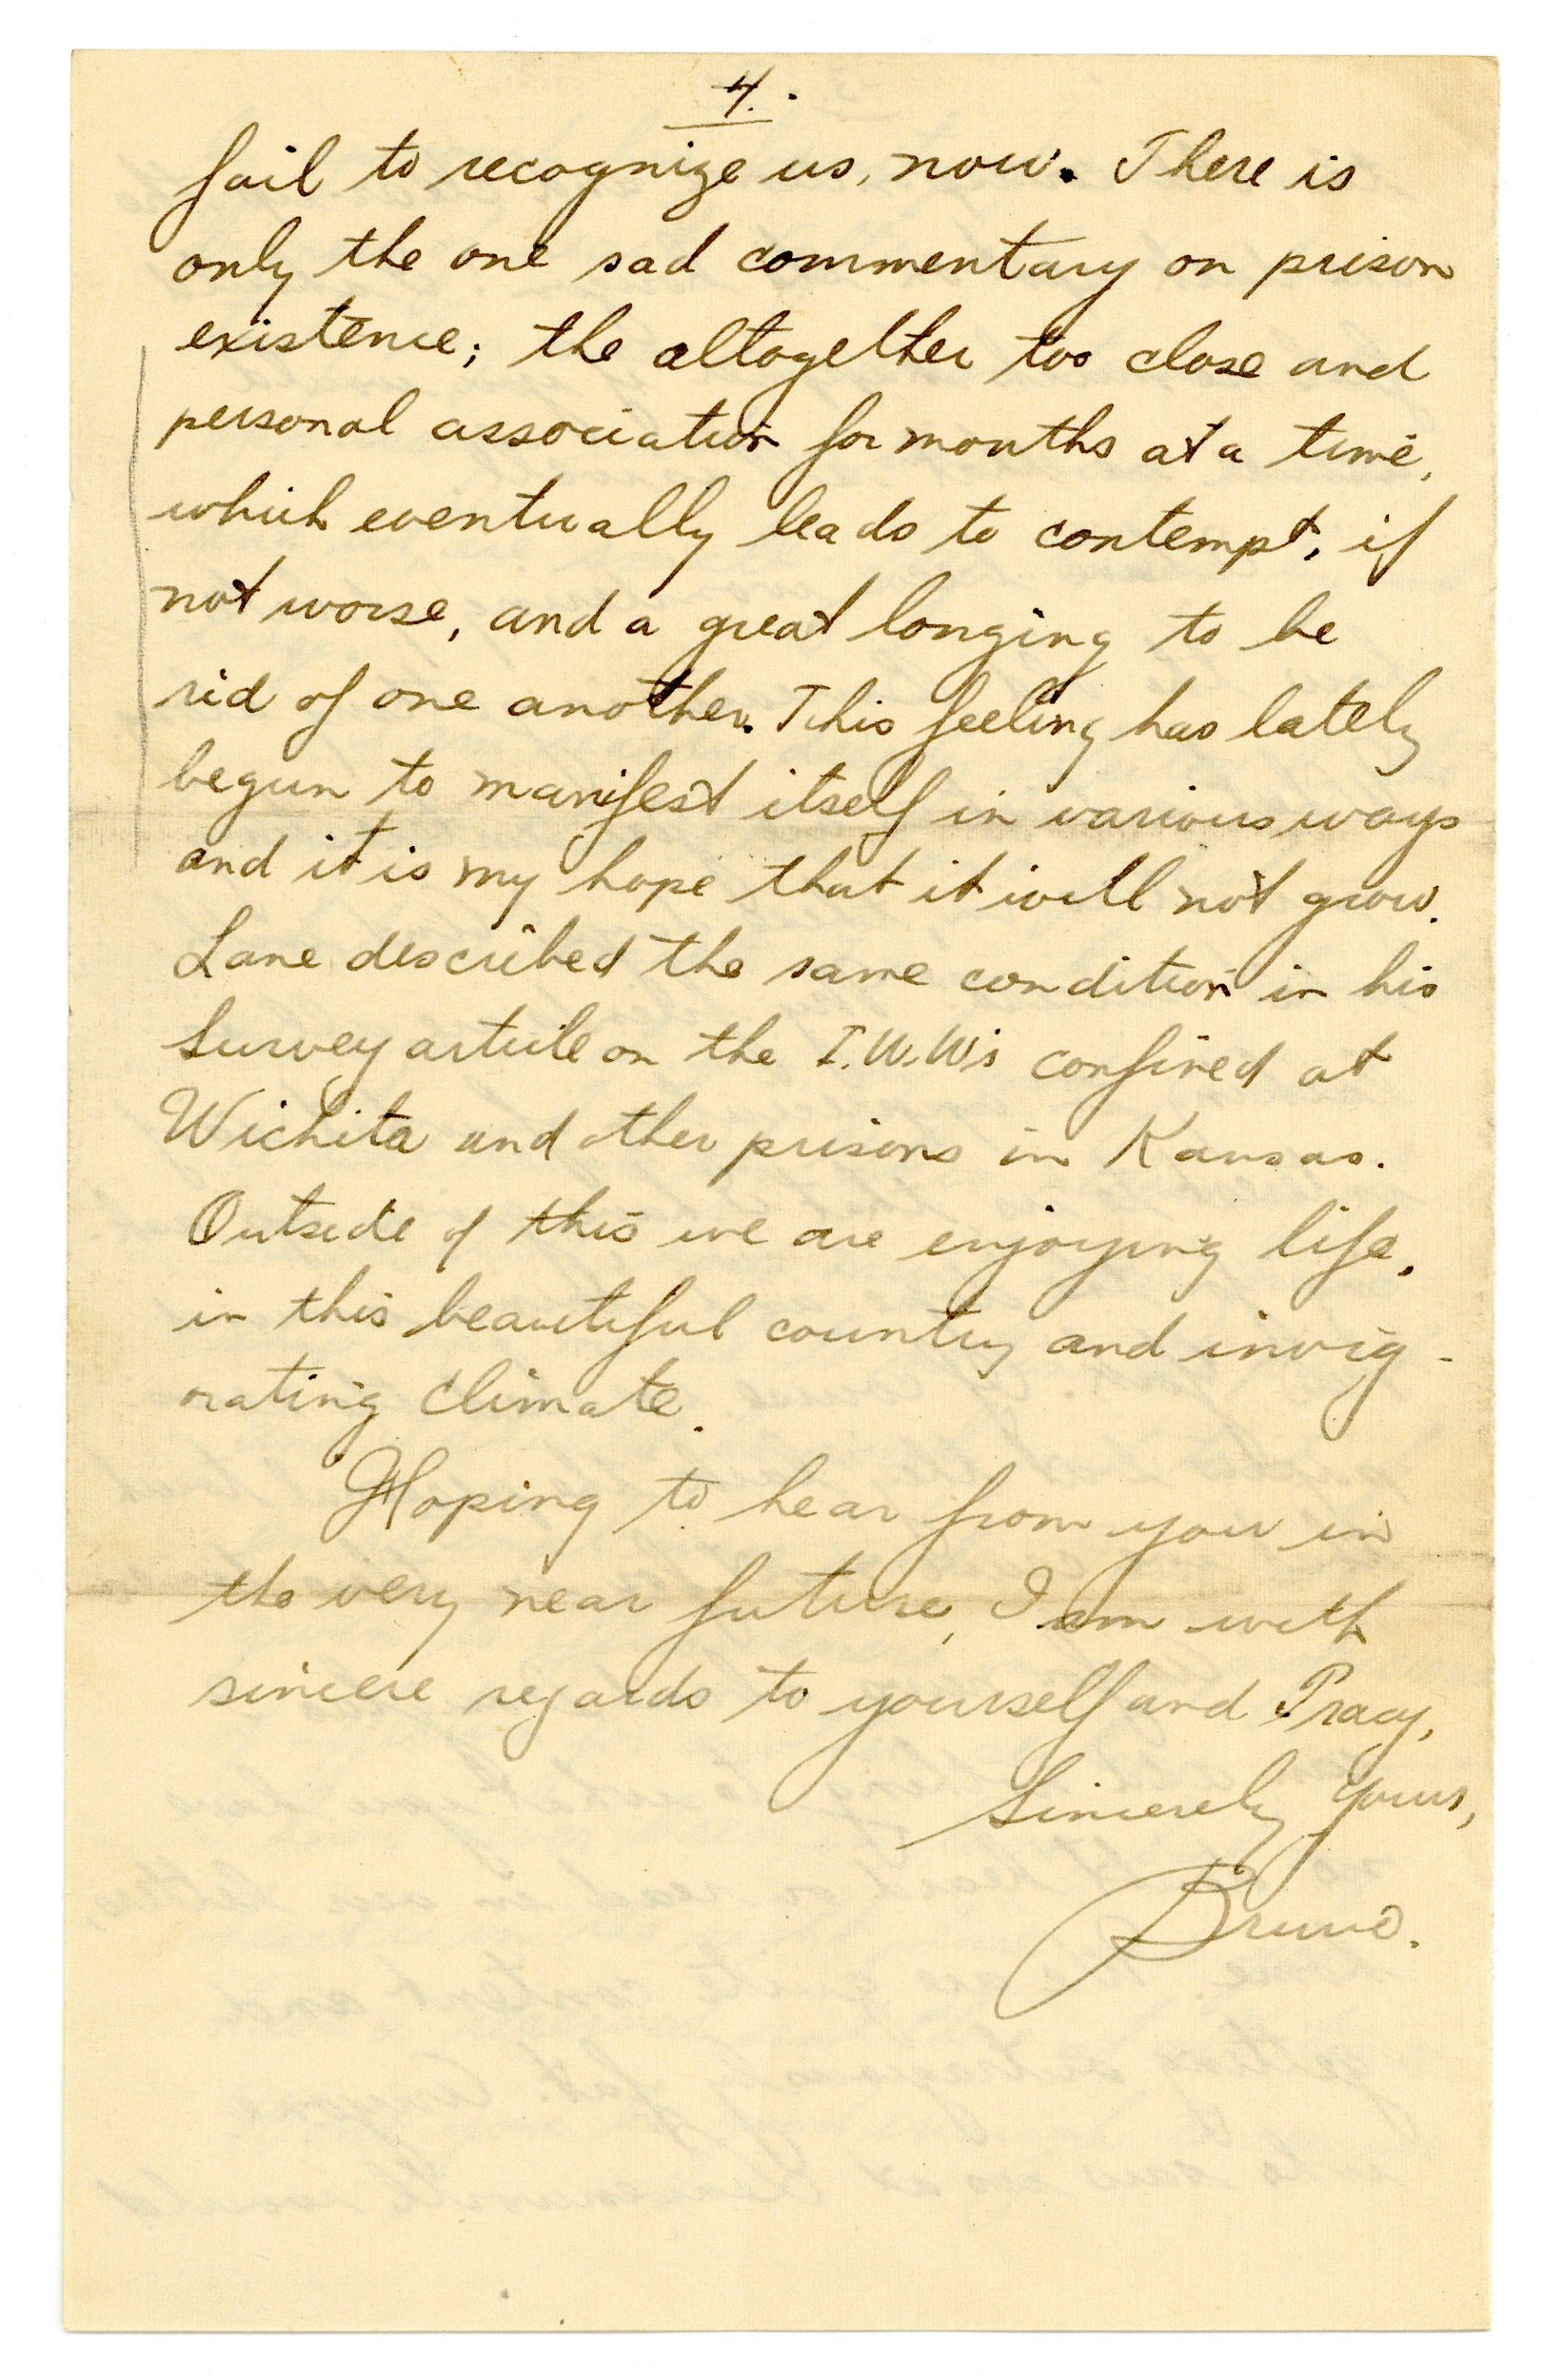 4.
fail to recognize us, now. There is
only the one sad commentary on prison
existence; the altogether too close and
personal association for months at a time,
which eventually leads to contempt, if
not worse, and a great longing to be
rid of one another. This feeling has lately
begun to manifest itself in various ways
and it is my hope that it will not grow.
Lane described the same condition in his
Survey article on the I.W.W's confined at
Wichita and other prisons in Kansas.
Outside of this we are enjoying life,
in this beautiful country and invig-
orating climate.
Hoping to hear from you in
the very near future, I am with
sincere regards to yourself and Tracy,
Sincerely yours,
Bruno.